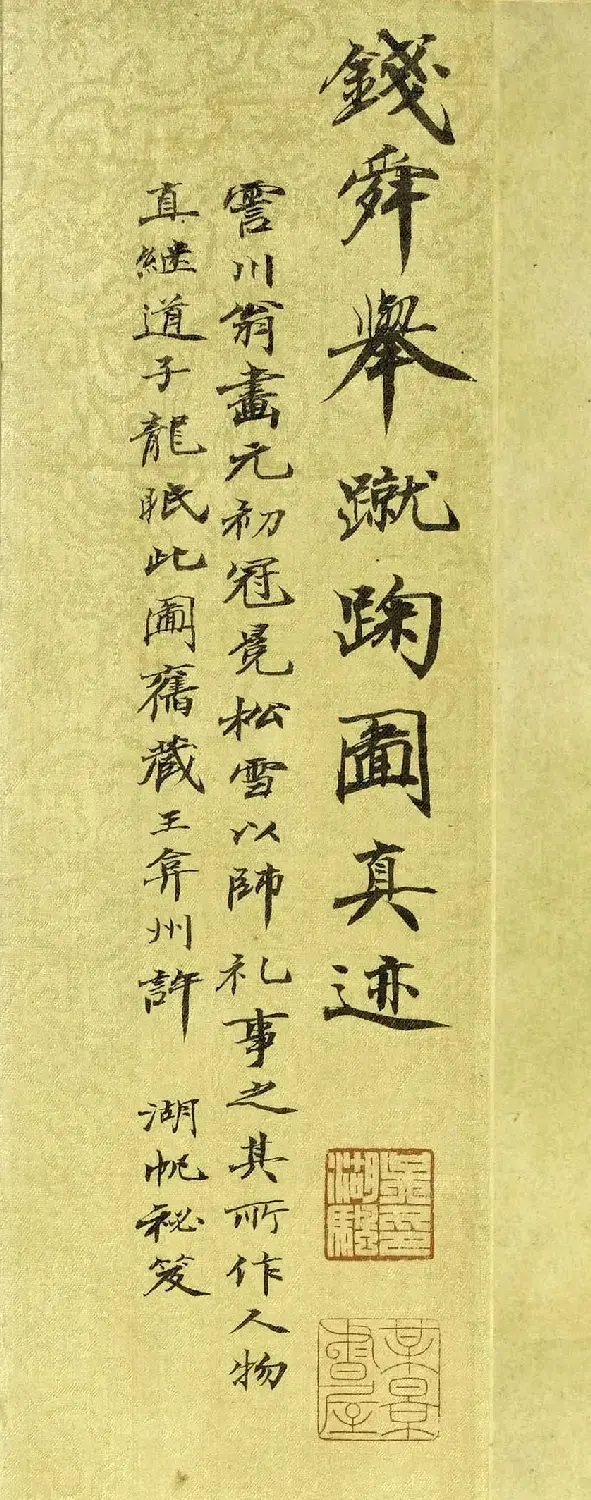 錢舜舉蹴踘圖真迹
霅川翁畫元初冠冕松雪以師礼事之其所作人物
真継道子龍眠此圖舊藏王弇州許 湖帆秘笈
某景書屋